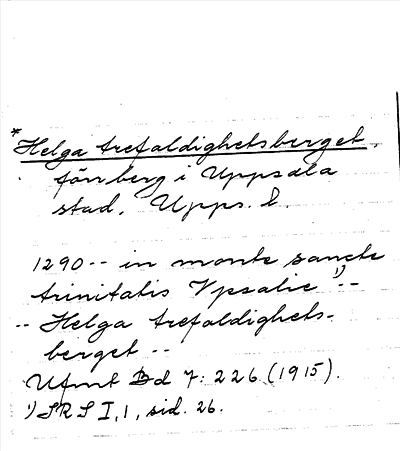 *Helga trefaldighetsberget,
förr berg i Uppsala
stad. Upps. l.
1290 -- in monte sancte
trinitatis Vpsalie ¹) --
-- Helga trefaldighets-
berget --
Ufmt Bd 7: 226 (1915).
¹) SRS I, 1, sid. 26.